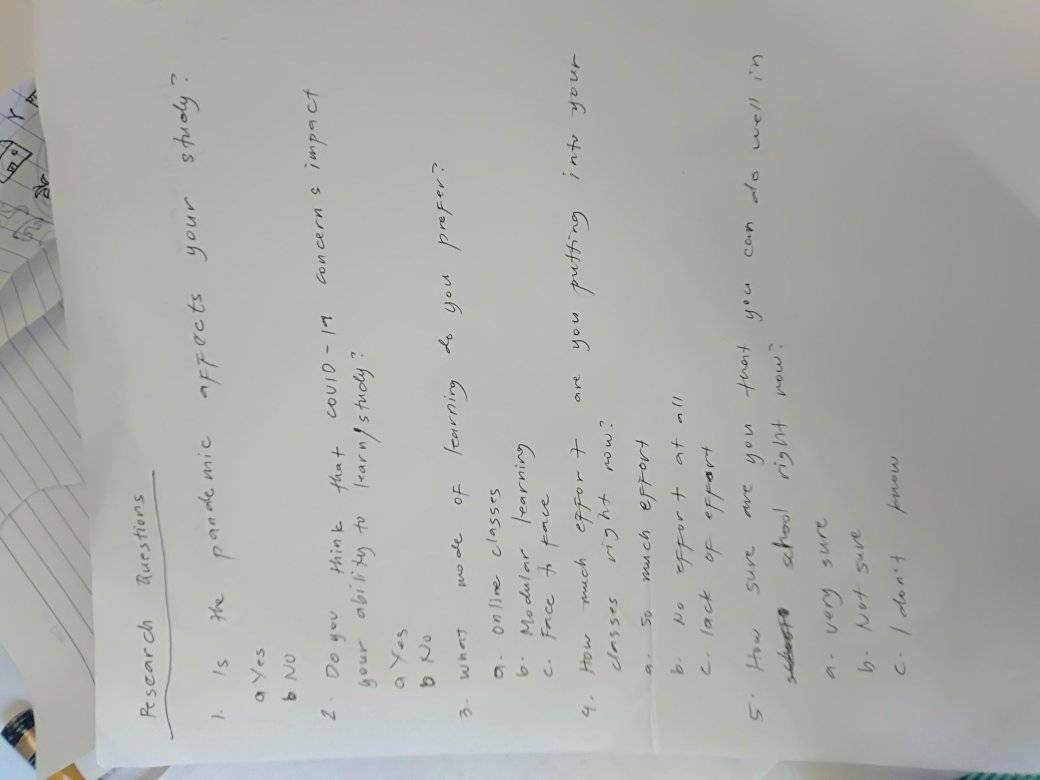 Research Questions
1. Is the pandemic affects your study?
a Yes
b NO
2. Do you think that COVID-19 concerns impact
your ability to learn/study?
a Yes
b No
3. What mode of learning do you prefer?
a. online classes
b. Modular learning
c. Face to face
4. How much effort are you putting into your
classes right now?
a. So much effort
b. No effort at all
c. lack of effort
5. How sure are you that you can do well in
school right now?
a. very sure
b. Not sure
c. I don't know